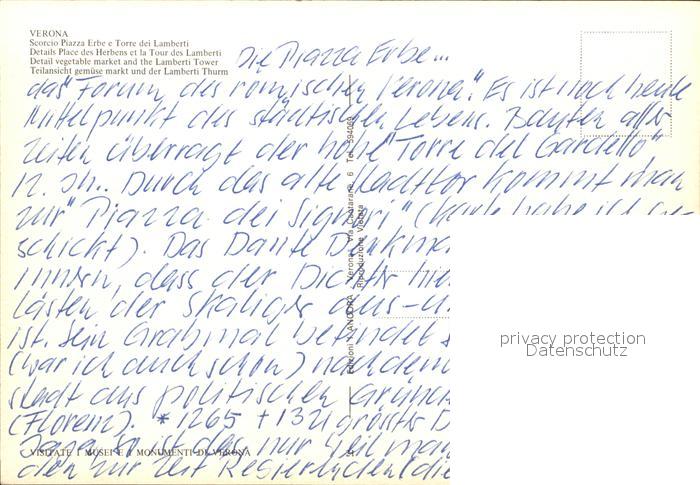 VERONA
Scorcio Piazza Erbe e Torre dei Lamberti
Details Place des Herbens et la Tour des Lamberti
Detail vegetable market and the Lamberti Tower
Teilansicht gemüse markt und der Lamberti Thurm
Die Piazza Erbe...
das "Forum des römischen Verona". Es ist noch heute
Mittelpunkt des städtischen Lebens. Bauten aller
Zeiten überragt der hohe "Torre del Gardello"
12. Jh.. Durch das alte Stadttor kommt man
zur "Piazza dei Signori" (Karte habe ich ge-
schickt). Das Dante Denkma
innern, dass der Dichter hie
lästen der Skaliger aus-u.
ist. Sein Grabmal befindet s
(war ich auch schon) nachdem
stadt aus politischen Gründ
(Florenz). * 1265 + 1321 grösster D
so ist das nur weil man
den zur Zeit Regierenden (die
VISITATE I MUSEI E I MONUMENTI DI VERONA
Edizioni
ANCORA - Verona - Via
6 Tel. 594069
Riproduzione Vietata
privacy protection
Datenschutz